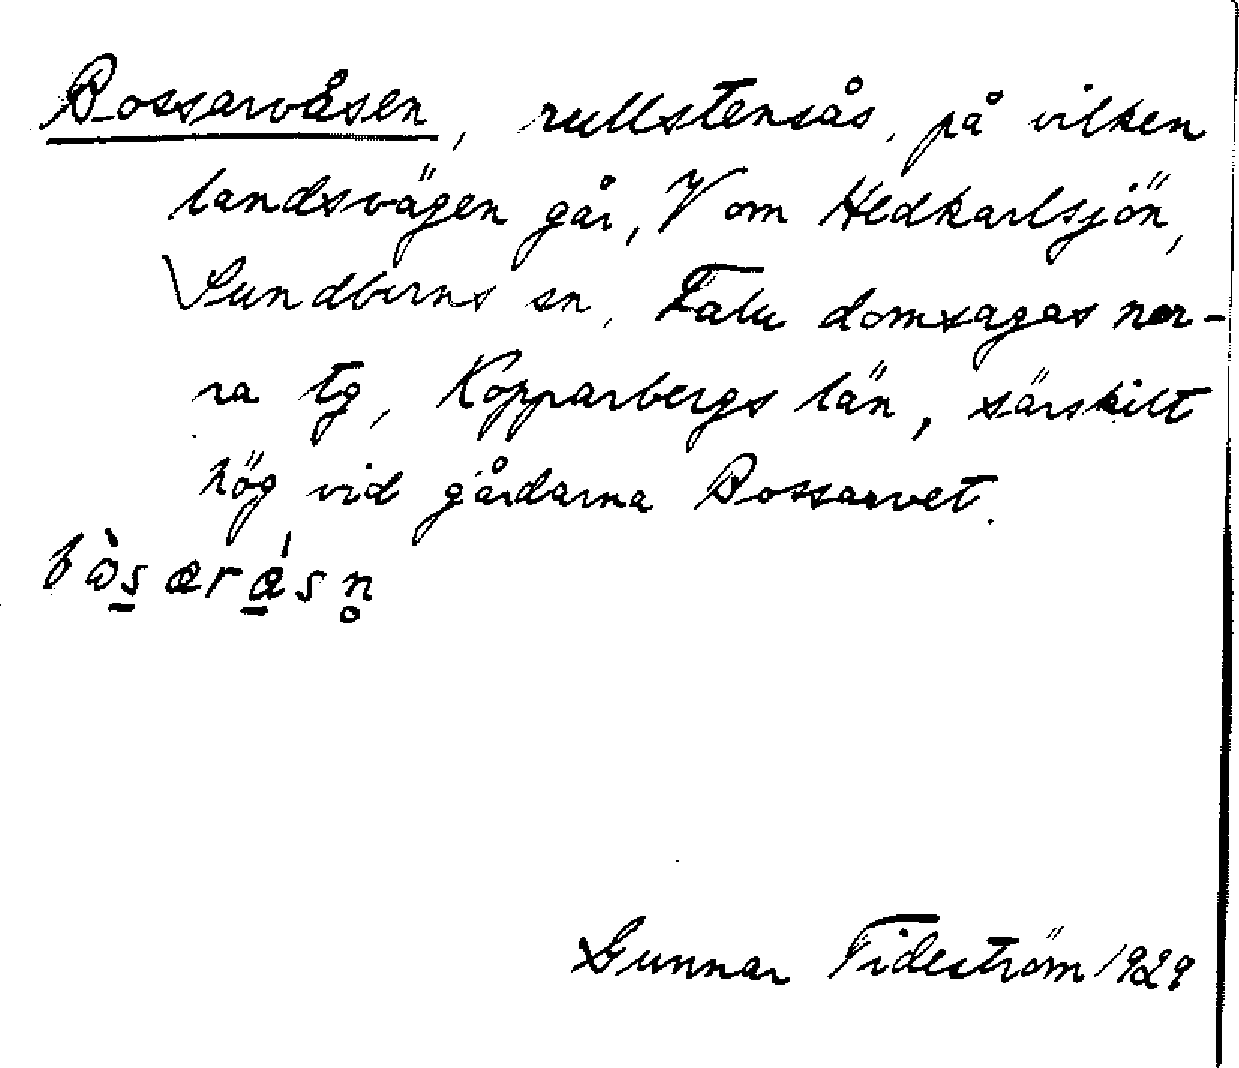 Bossarvåsen, rullstensås, på vilken
landsvägen går, V om Hedkarlsjön,
Sundborns sn, Falu domsagas nor-
ra tg, Kopparbergs län, särskilt
hög vid gårdarna Bossarvet.
bòsæråsn̥
Gunnar Tideström 1929